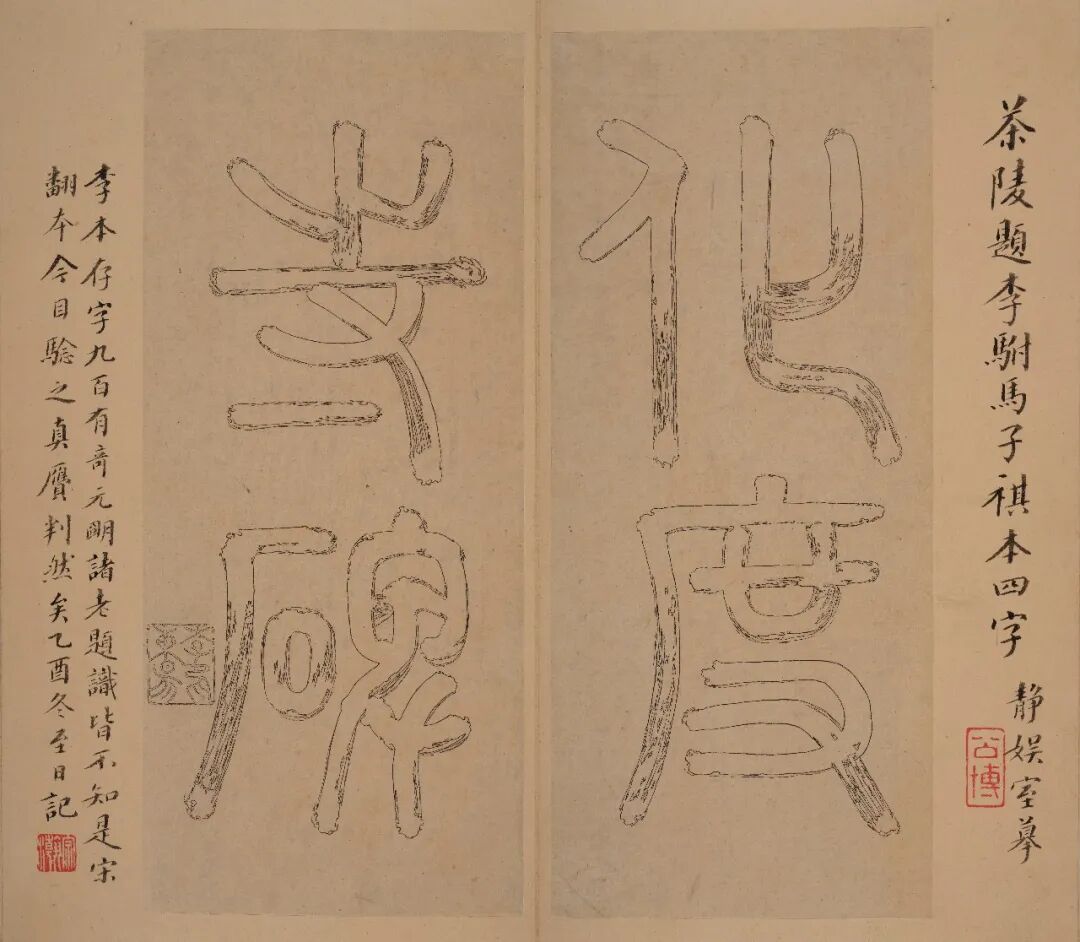 茶陵題李駙馬子祺本四字
静娱室摹
公博
化度
寺碑
李本存字九百有奇元明諸老題識皆不知是宋
翻本今目驗之真贋判然矣乙酉冬至日記